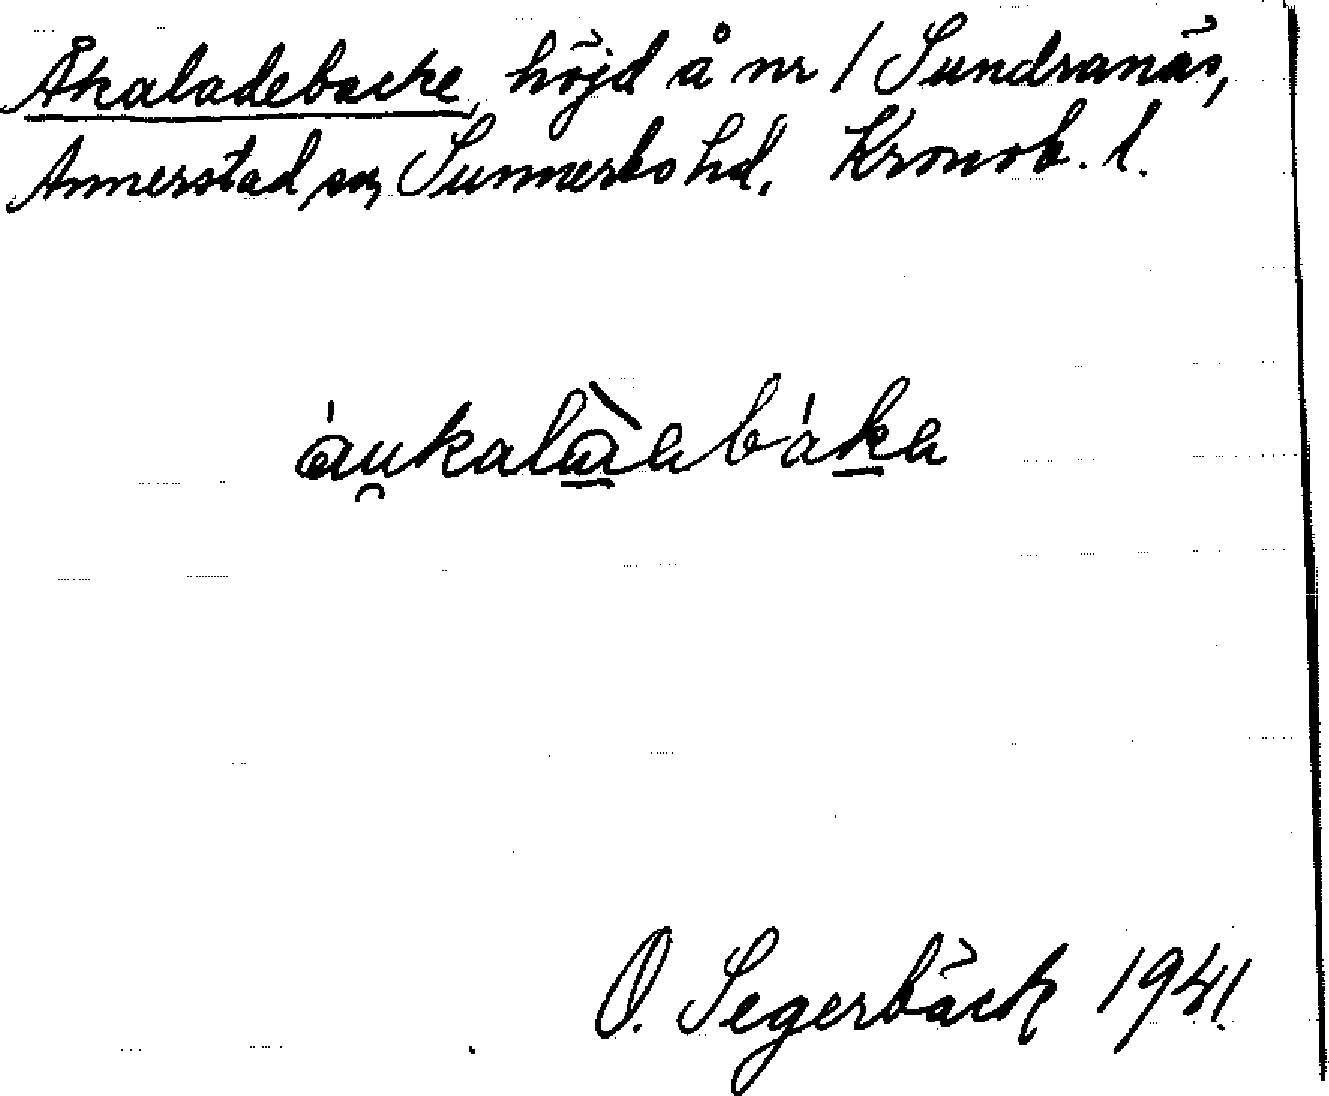 Åkaladebacke, höjd å nr 1 Sundranäs,
Annerstad sn, Sunnerbo hd. Kronob. l.
áu̯kalàabáka
O. Segerbäck 1941.